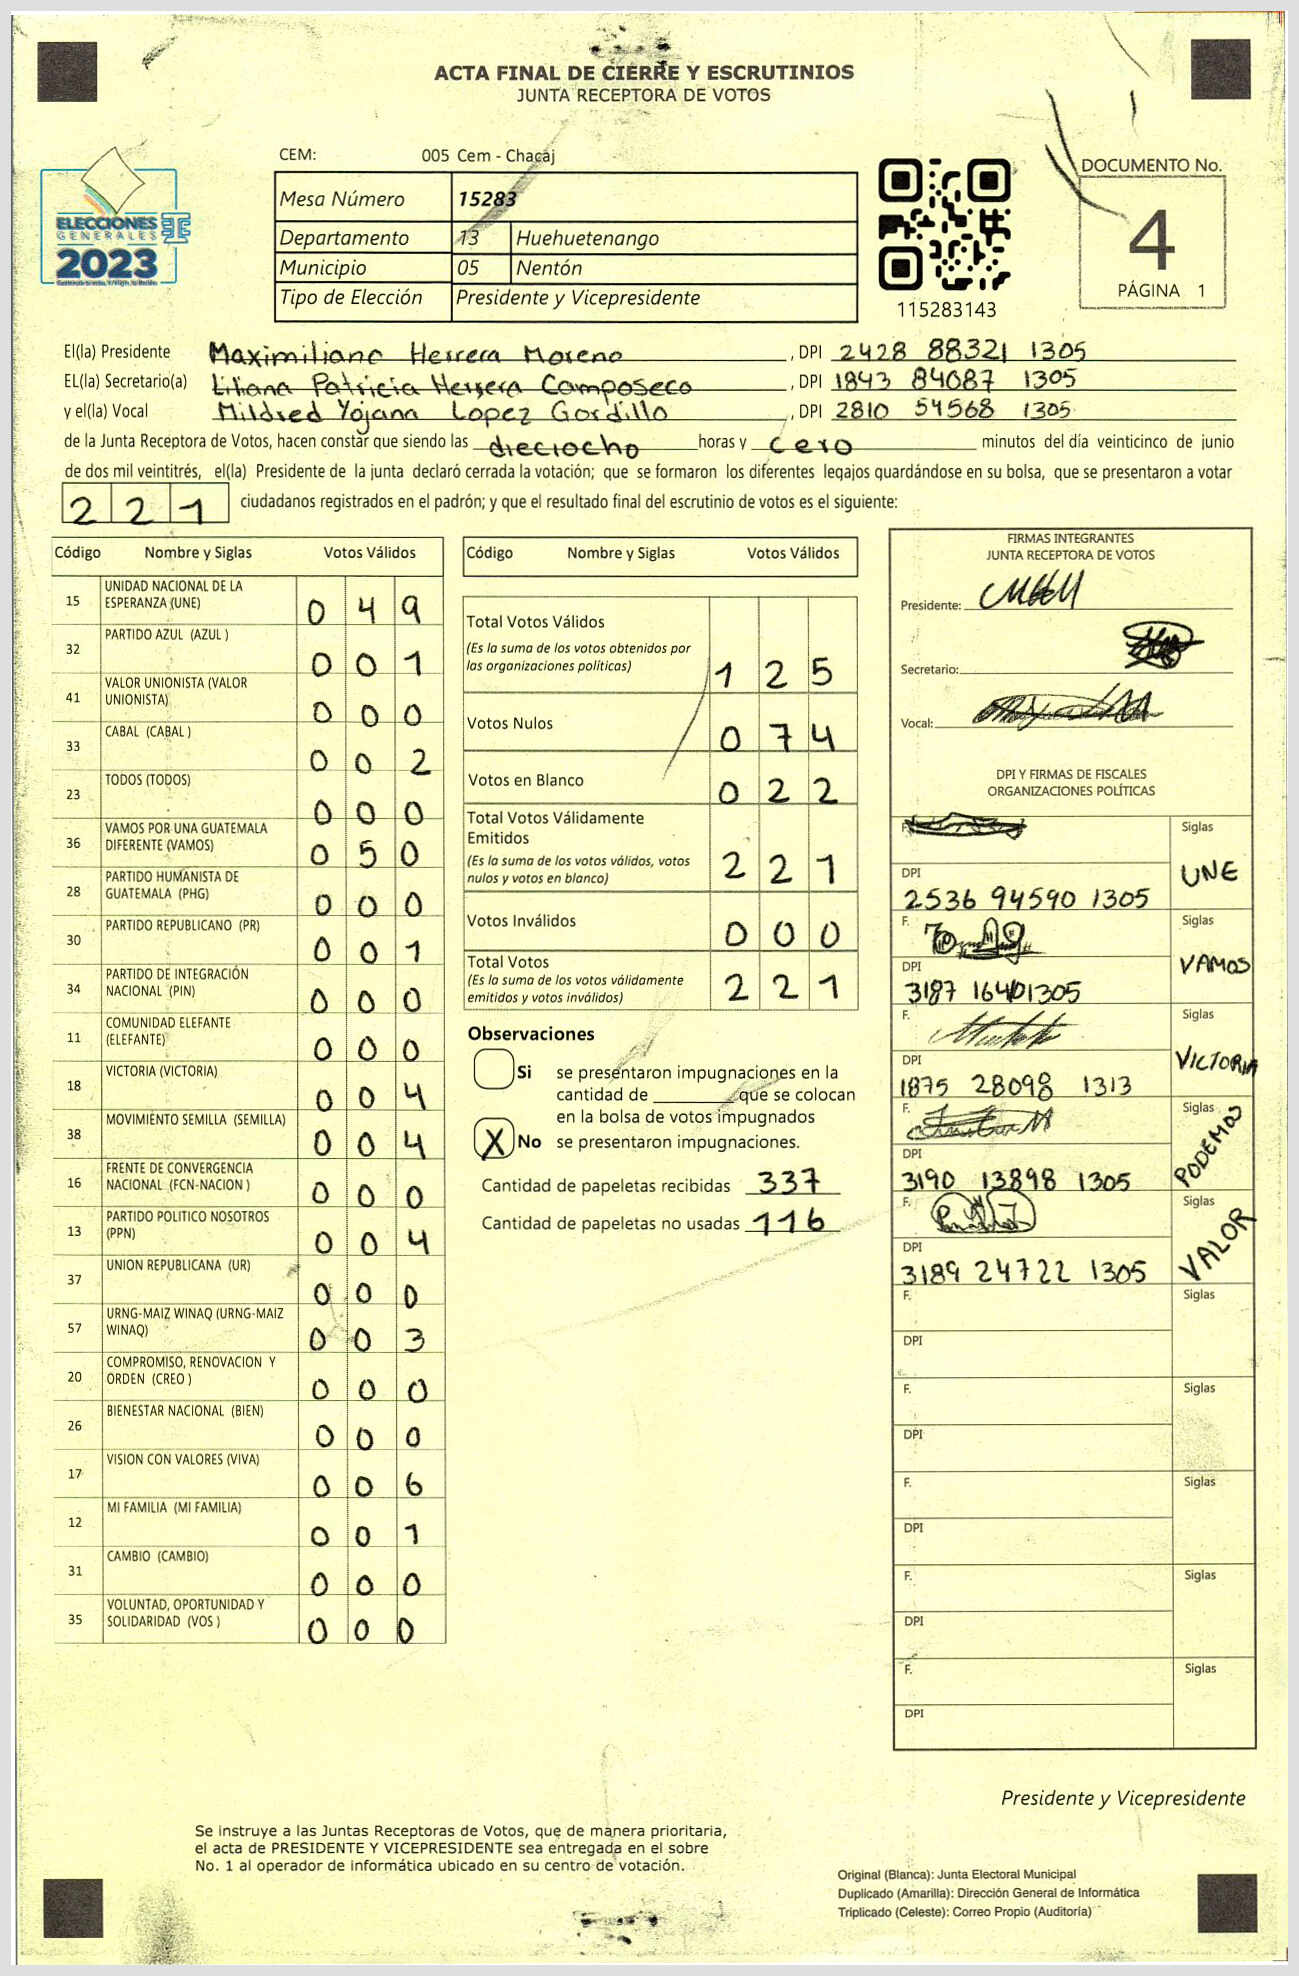 ACTA FINAL DE CIERRE Y ESCRUTINIOS
JUNTA RECEPTORA DE VOTOS
CEM: 005 Cem - Chacaj
Mesa Número 15283
Departamento 13 Huehuetenango
Municipio 05 Nentón
Tipo de Elección Presidente y Vicepresidente
ELECCIONES
GENERALES
2023
115283143
DOCUMENTO No.
4
PÁGINA 1
El(la) Presidente Maximiliano Herrera Moreno, DPI 2428 88321 1305
EL(la) Secretario(a) Liliana Patricia Herrera Camposeco, DPI 1843 84087 1305
y el(la) Vocal Mildred Yojana Lopez Gordillo, DPI 2810 54568 1305
de la Junta Receptora de Votos, hacen constar que siendo las dieciocho horas y cero minutos del día veinticinco de junio
de dos mil veintitrés, el(la) Presidente de la junta declaró cerrada la votación; que se formaron los diferentes legajos guardándose en su bolsa, que se presentaron a votar
221 ciudadanos registrados en el padrón; y que el resultado final del escrutinio de votos es el siguiente:
Código Nombre y Siglas Votos Válidos
15 UNIDAD NACIONAL DE LA
ESPERANZA (UNE) 0 4 9
32 PARTIDO AZUL (AZUL ) 0 0 1
41 VALOR UNIONISTA (VALOR
UNIONISTA) 0 0 0
33 CABAL (CABAL ) 0 0 2
23 TODOS (TODOS) 0 0 0
36 VAMOS POR UNA GUATEMALA
DIFERENTE (VAMOS) 0 5 0
28 PARTIDO HUMANISTA DE
GUATEMALA (PHG) 0 0 0
30 PARTIDO REPUBLICANO (PR) 0 0 1
34 PARTIDO DE INTEGRACIÓN
NACIONAL (PIN) 0 0 0
11 COMUNIDAD ELEFANTE
(ELEFANTE) 0 0 0
18 VICTORIA (VICTORIA) 0 0 4
38 MOVIMIENTO SEMILLA (SEMILLA) 0 0 4
16 FRENTE DE CONVERGENCIA
NACIONAL (FCN-NACION ) 0 0 0
13 PARTIDO POLITICO NOSOTROS
(PPN) 0 0 4
37 UNION REPUBLICANA (UR) 0 0 0
57 URNG-MAIZ WINAQ (URNG-MAIZ
WINAQ) 0 0 3
20 COMPROMISO, RENOVACION Y
ORDEN (CREO ) 0 0 0
26 BIENESTAR NACIONAL (BIEN) 0 0 0
17 VISION CON VALORES (VIVA) 0 0 6
12 MI FAMILIA (MI FAMILIA) 0 0 1
31 CAMBIO (CAMBIO) 0 0 0
35 VOLUNTAD, OPORTUNIDAD Y
SOLIDARIDAD (VOS ) 0 0 0
Código Nombre y Siglas Votos Válidos
Total Votos Válidos
(Es la suma de los votos obtenidos por
las organizaciones políticas) 1 2 5
Votos Nulos 0 7 4
Votos en Blanco 0 2 2
Total Votos Válidamente
Emitidos
(Es la suma de los votos válidos, votos
nulos y votos en blanco) 2 2 1
Votos Inválidos 0 0 0
Total Votos
(Es la suma de los votos válidamente
emitidos y votos inválidos) 2 2 1
Observaciones
Si se presentaron impugnaciones en la
cantidad de ________ que se colocan
en la bolsa de votos impugnados
X No se presentaron impugnaciones.
Cantidad de papeletas recibidas 337
Cantidad de papeletas no usadas 116
FIRMAS INTEGRANTES
JUNTA RECEPTORA DE VOTOS
Presidente:
Secretario:
Vocal:
DPI Y FIRMAS DE FISCALES
ORGANIZACIONES POLÍTICAS
F. Siglas
UNE
DPI
2536 94590 1305
F. Siglas
VAMOS
DPI
3187 16401305
F. Siglas
VICTORIA
DPI
1875 28098 1313
F. Siglas
PODEMOS
DPI
3190 13898 1305
F. Siglas
VALOR
DPI
3189 24722 1305
F. Siglas
DPI
F. Siglas
DPI
F. Siglas
DPI
F. Siglas
DPI
F. Siglas
DPI
Presidente y Vicepresidente
Se instruye a las Juntas Receptoras de Votos, que de manera prioritaria,
el acta de PRESIDENTE Y VICEPRESIDENTE sea entregada en el sobre
No. 1 al operador de informática ubicado en su centro de votación.
Original (Blanca): Junta Electoral Municipal
Duplicado (Amarilla): Dirección General de Informática
Triplicado (Celeste): Correo Propio (Auditoría)